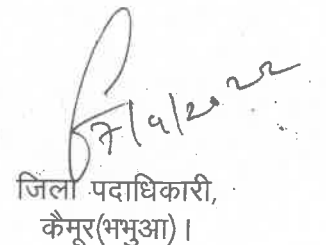 7/9/2022
जिला पदाधिकारी,
कैमूर(भभुआ)।